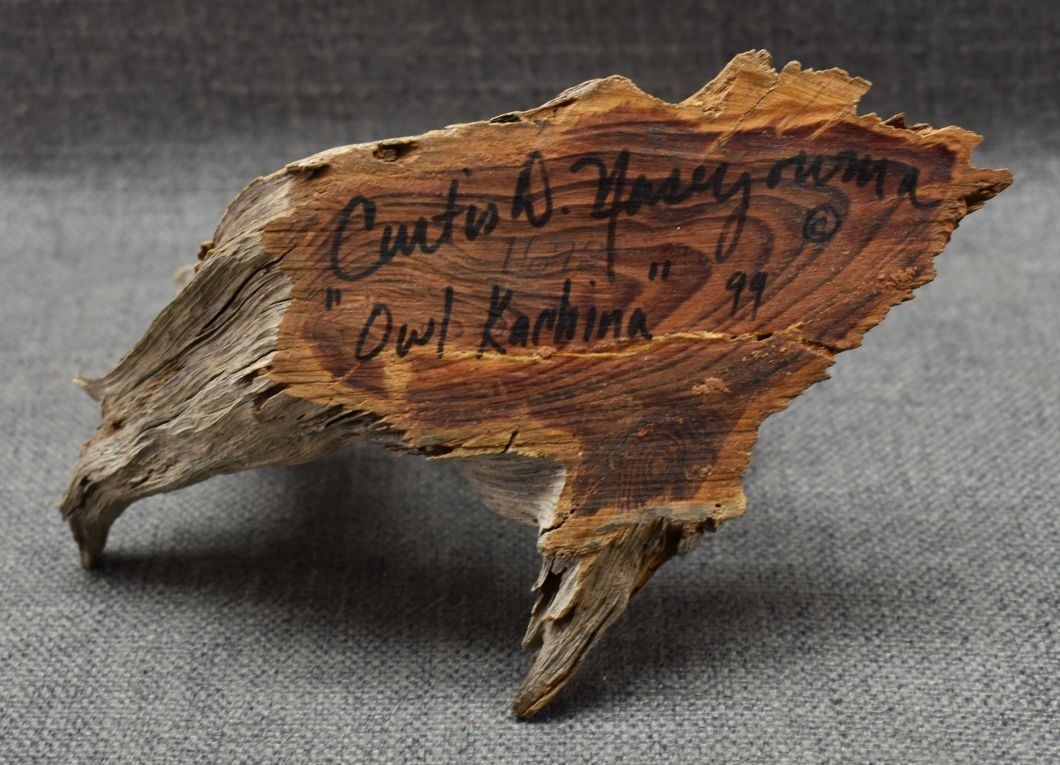 Curtis D. Naseyowma ©
"Owl Kachina" 99